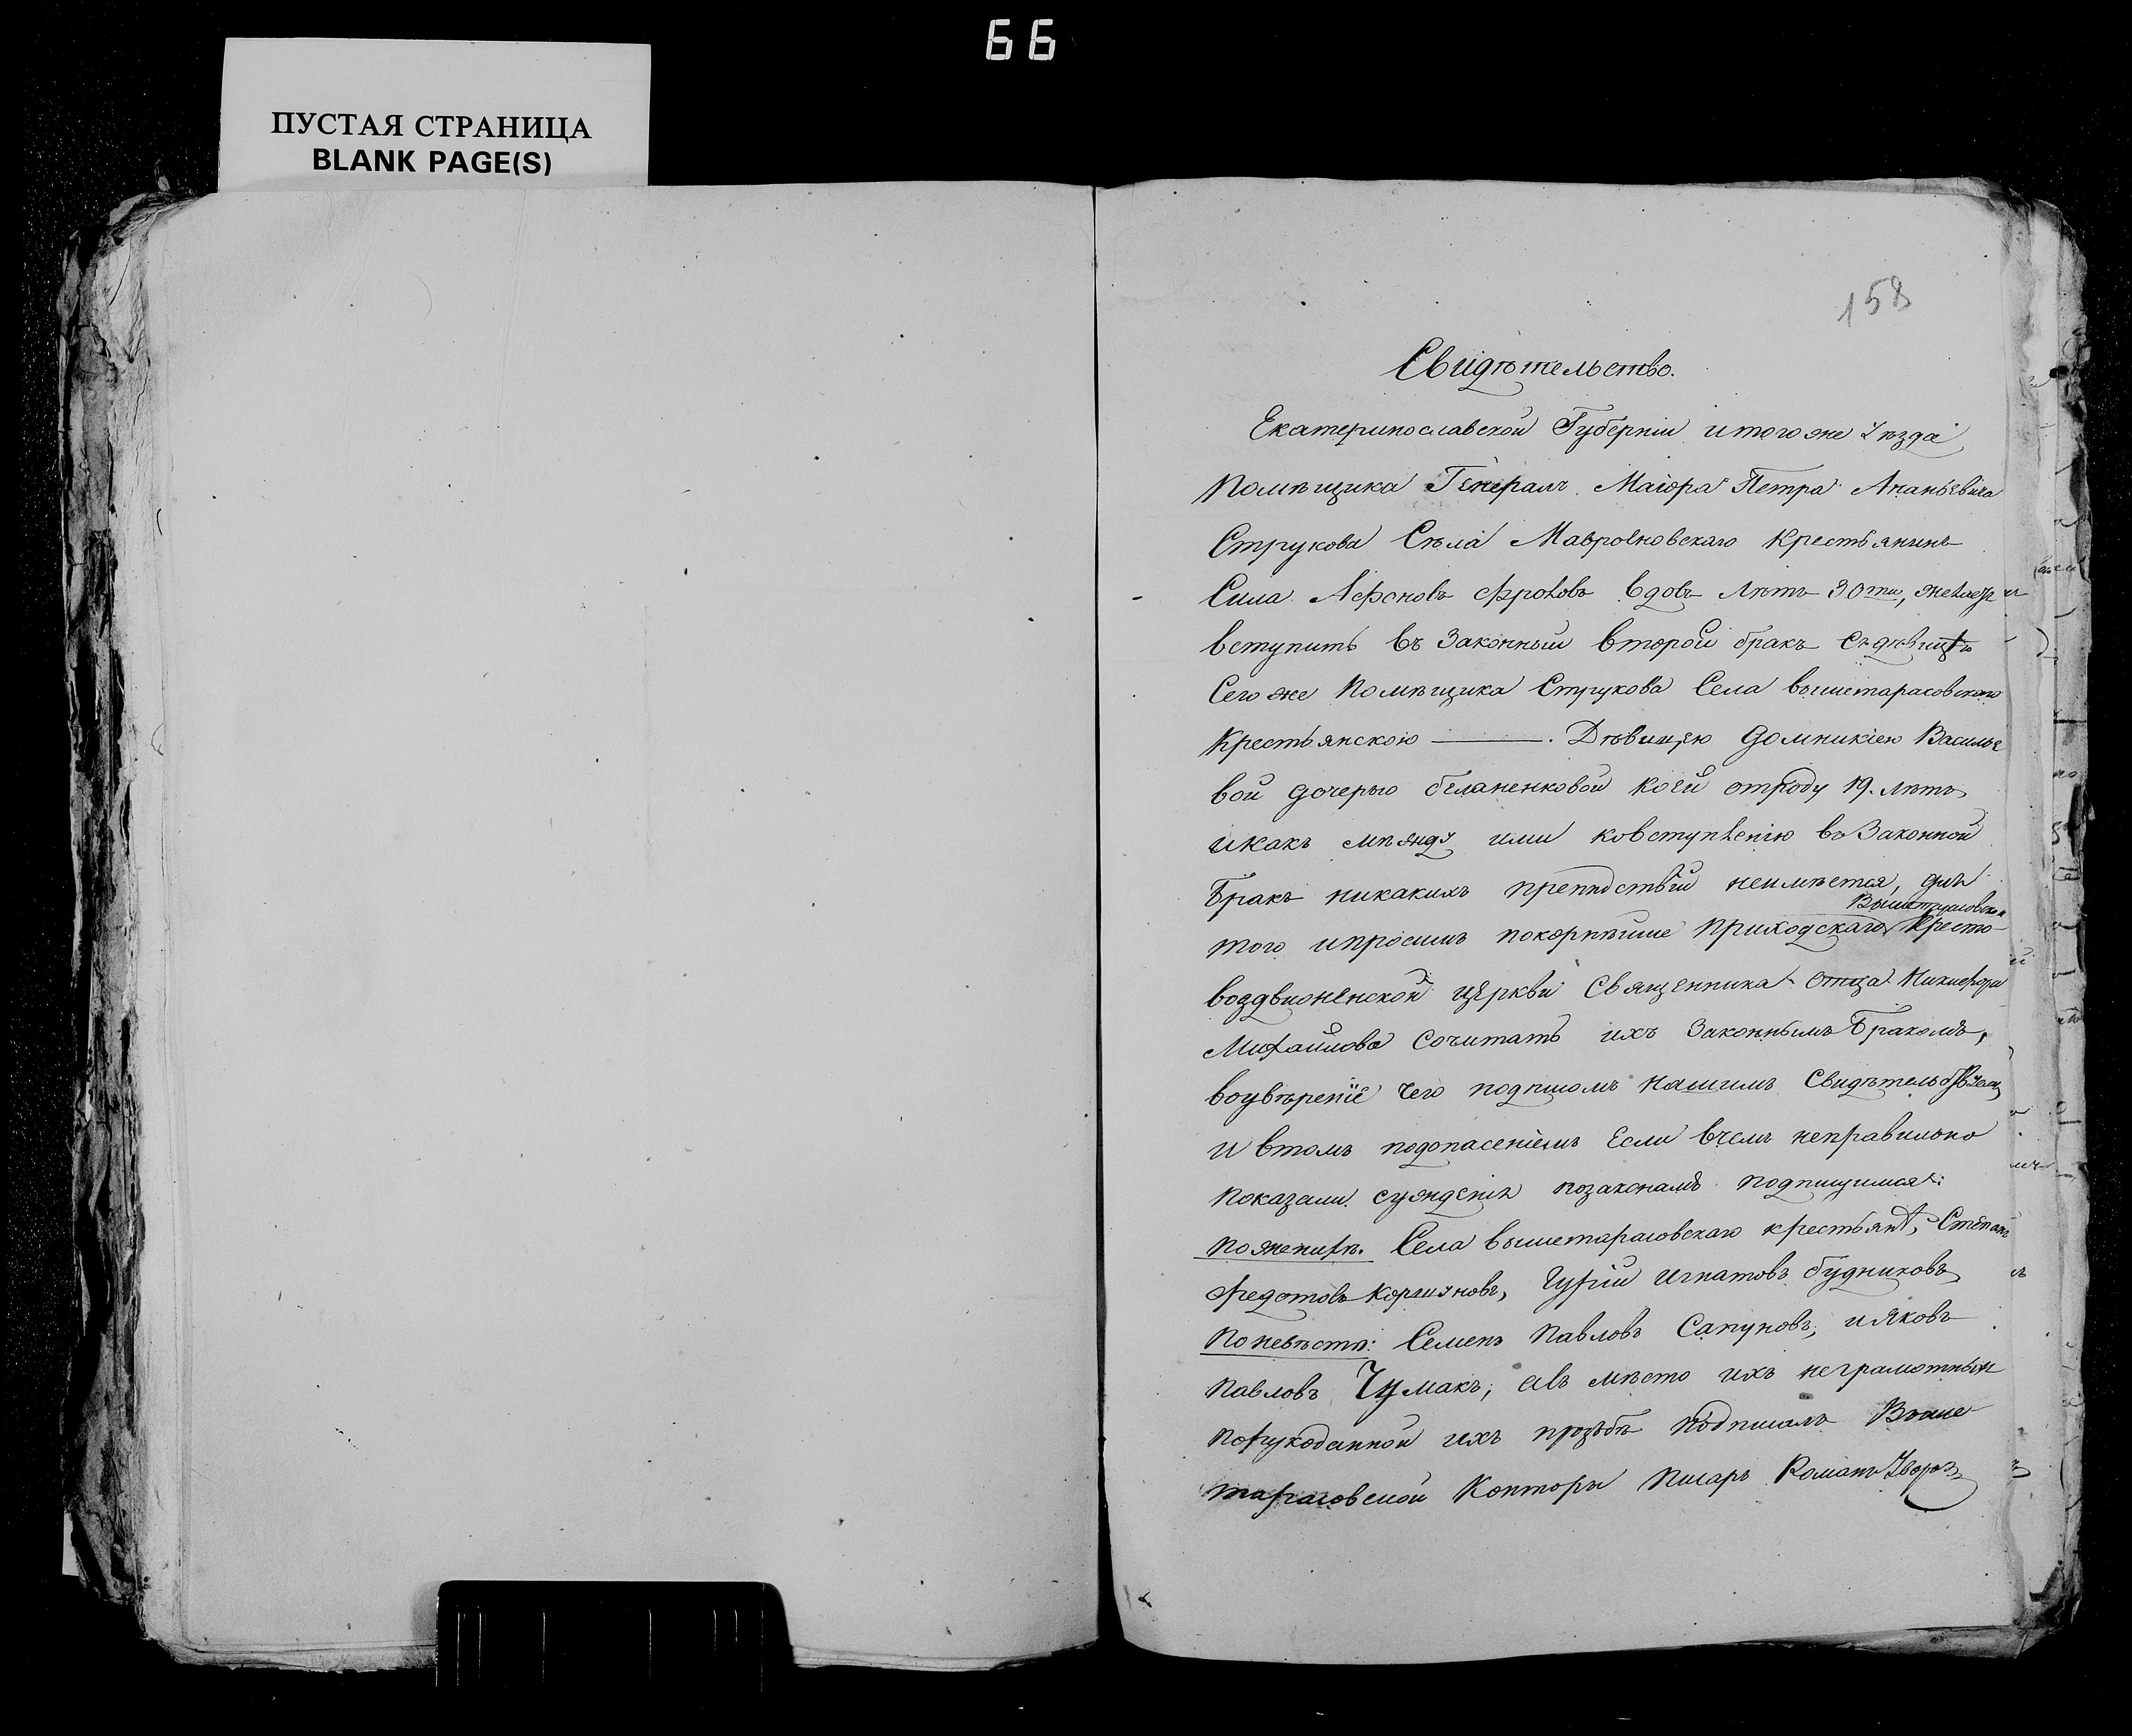 66
ПУСТАЯ СТРАНИЦА
BLANK PAGE(S)
158
Свидѣтельство.
Екатеринославской Губерніи итогоже уѣзда
Помѣщика Генералъ Маіора Петра Ананьевича
Струкова Сѣла Мавроеновскаго Крестьянинъ
Сила Афоновъ Фроловъ вдовъ лѣтъ 30ти, желаетъ
вступить въ Законный второй бракъ съдѣвицѣю
Сегоже Помѣщика Струкова Села вышетарасовскаго
Крестьянскою ——. Дѣвицею Домникіею Василье
вой дочерью беланенковой коей отроду 19. лѣтъ
икакъ мѣжду ими ковступленію во Законной
Бракъ никакихъ препядствій неимѣется, для
того ипросимъ покорнѣише Приходскаго Вышетрасовской Кресто-
воздвиженской церкви Священника отца Никифора
Михайлова Сочитать ихъ Законнымъ Бракомъ,
воувѣреніе чего подписомъ нашимъ Свидѣтельствуемъ
и втомъ подопасеніемъ Если вчемъ неправильно
показали сужденія позаконамъ подпишимся:
пожених. Села вышетарасовскаго крестьяне, Степанъ
Федотовъ Коршуновъ, Гурій игнатовъ будниковъ
поневѣстѣ: Семенъ Павловъ Сапуновъ, ияковъ
павловъ Чумакъ, авъ мѣсто ихъ неграмотныхъ
порукоданной ихъ прозьбѣ подписалъ Выше
тарасовской Конторы писарь Романъ